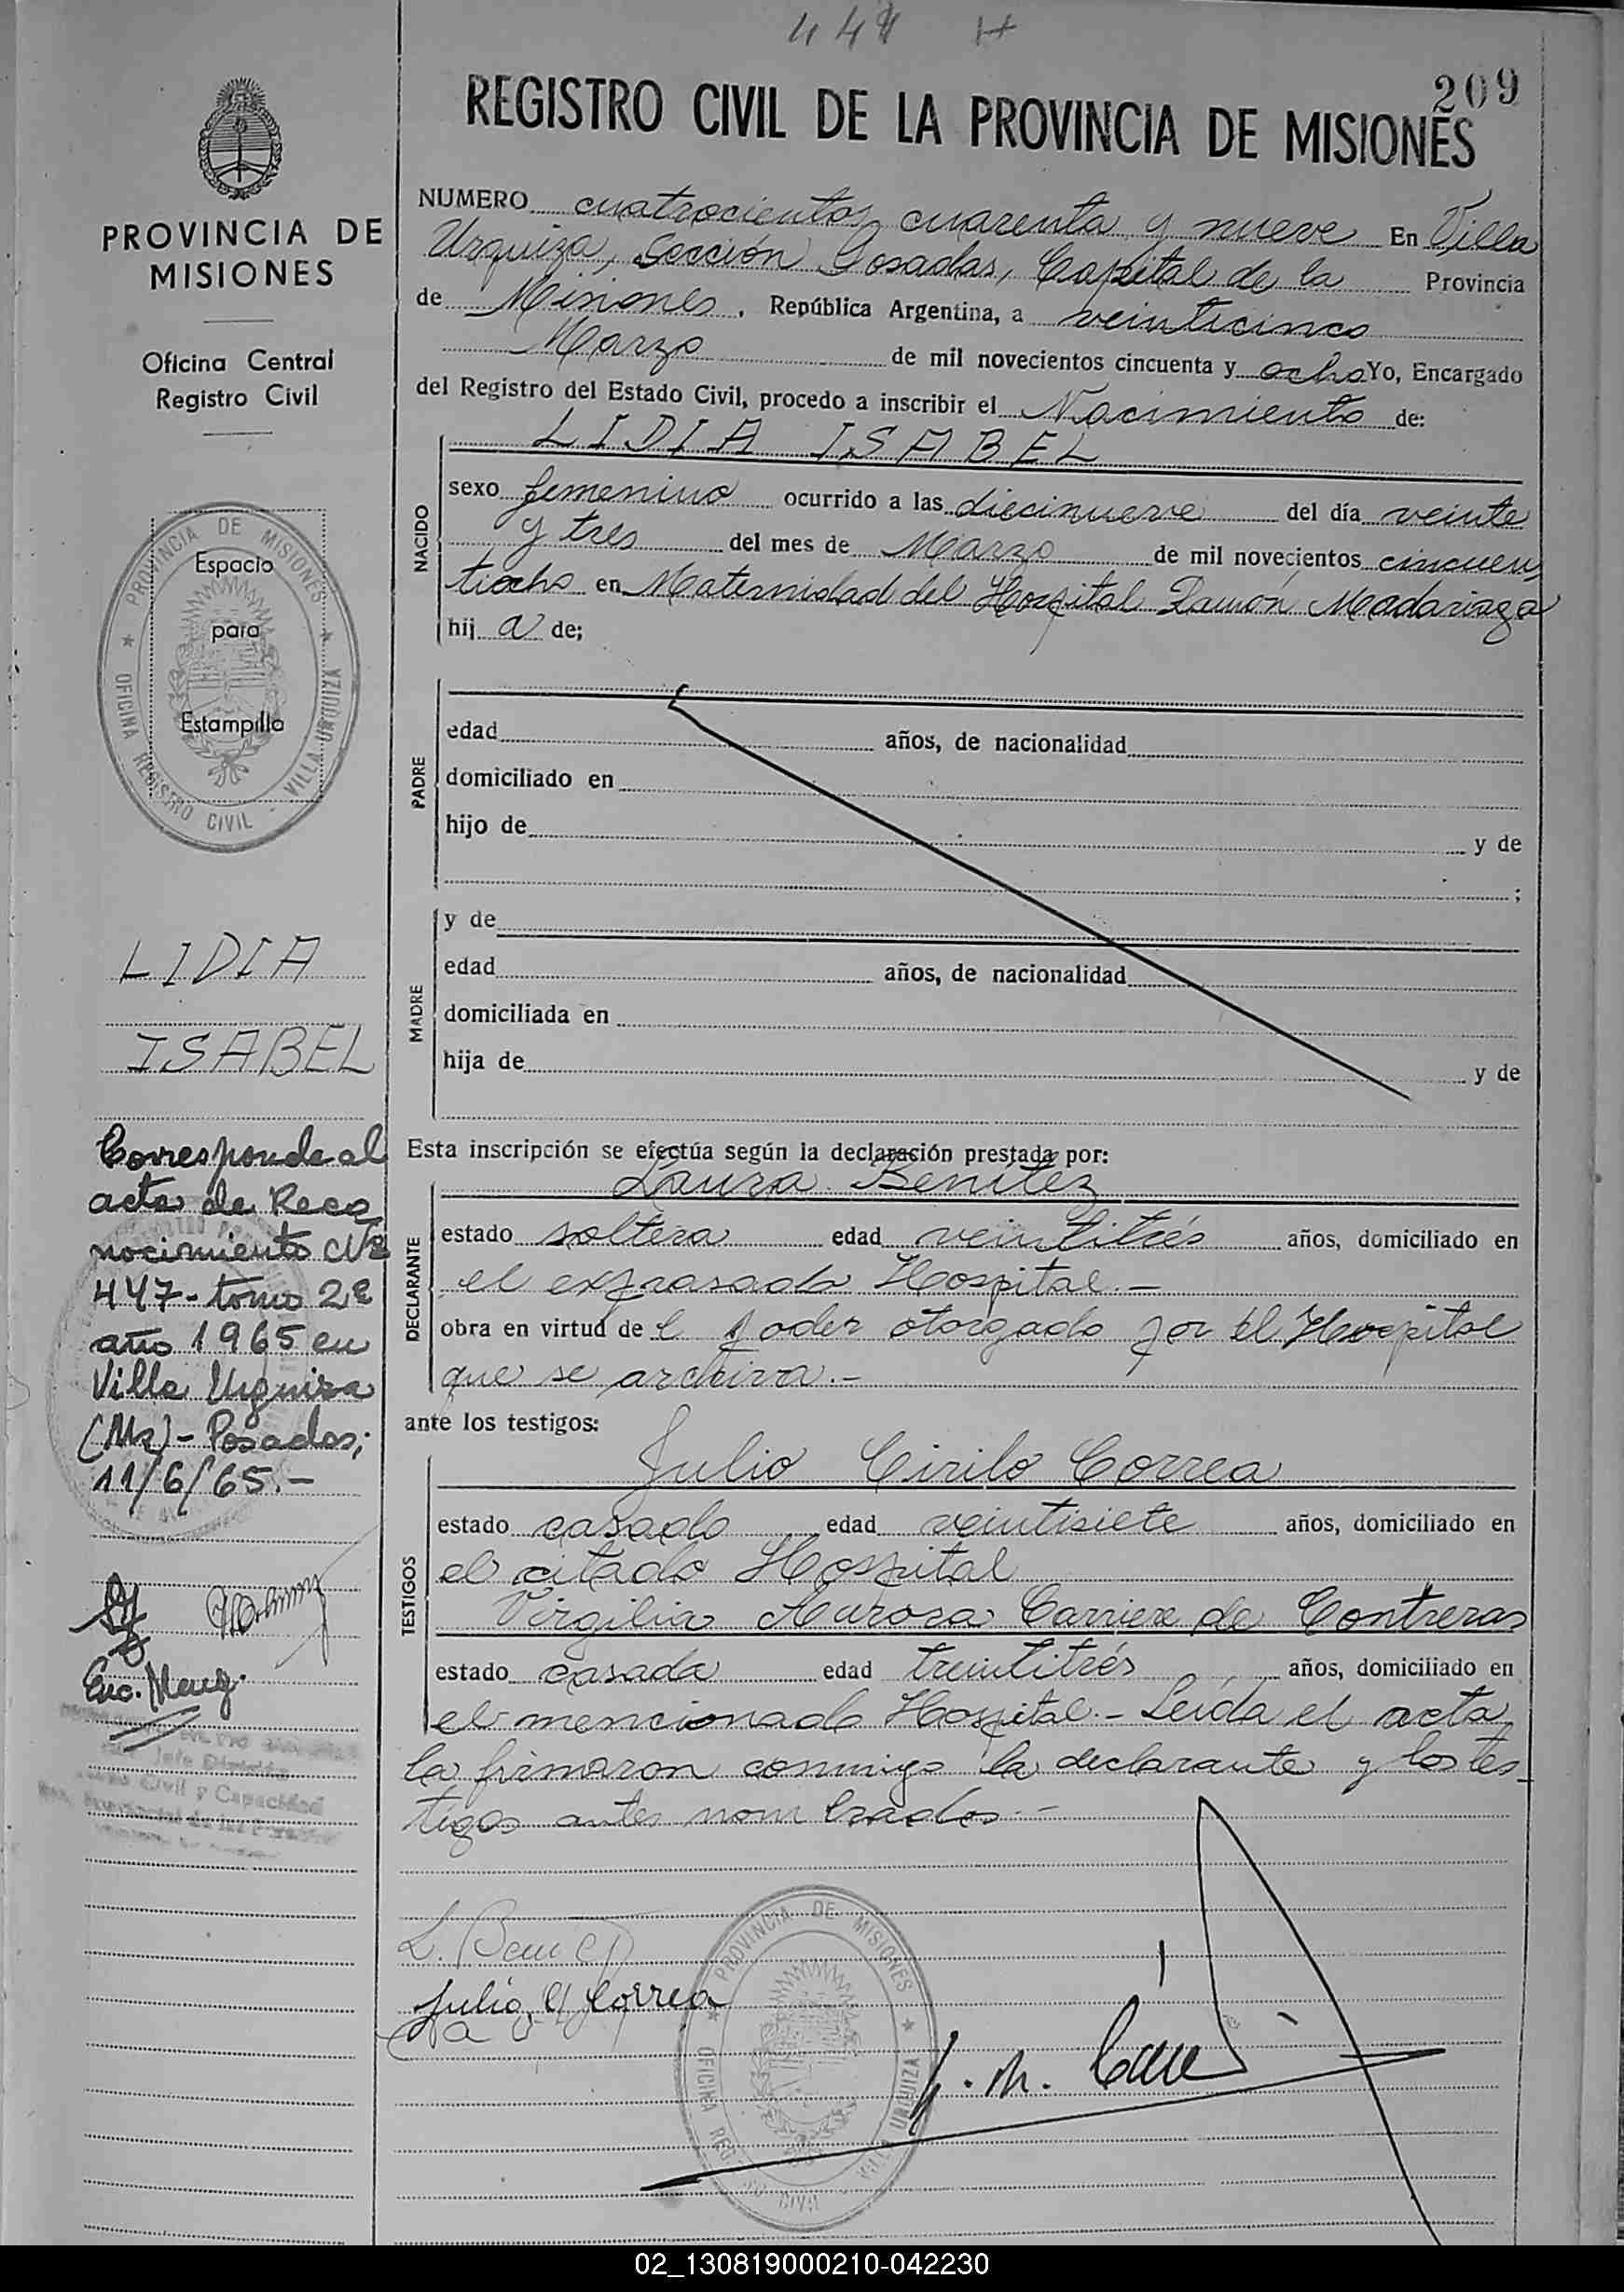 449
209
REGISTRO CIVIL DE LA PROVINCIA DE MISIONES
PROVINCIA DE
MISIONES
Oficina Central
Registro Civil
PROVINCIA DE MISIONES
OFICINA REGISTRO CIVIL - VILLA URQUIZA
Espacio
para
Estampilla
LIDIA
ISABEL
Corresponde al
acta de Reco
nocimiento Nº
447 - tomo 2º
año 1965 en
Villa Urquiza
(Ms) - Posadas;
11/6/65.-
Jefe División
Civil y Capacidad
NUMERO cuatrocientos cuarenta y nueve En Villa
Urquiza, Sección Posadas, Capital de la Provincia
de Misiones, República Argentina, a veinticinco
Marzo de mil novecientos cincuenta y ocho Yo, Encargado
del Registro del Estado Civil, procedo a inscribir el Nacimiento de:
NACIDO
LIDIA ISABEL
sexo femenino ocurrido a las diecinueve del día veinte
y tres del mes de Marzo de mil novecientos cincuen
tiocho en Maternidad del Hospital Ramón Madariaga
hij a de;
PADRE
edad años, de nacionalidad
domiciliado en
hijo de y de
;
MADRE
y de
edad años, de nacionalidad
domiciliada en
hija de y de
Esta inscripción se efectúa según la declaración prestada por:
DECLARANTE
Laura Benítez
estado soltera edad veintitrés años, domiciliado en
el expresado Hospital.-
obra en virtud de l poder otorgado por el Hospital
que se archiva.-
ante los testigos:
TESTIGOS
Julio Cirilo Correa
estado casado edad veintisiete años, domiciliado en
el citado Hospital
Virgilia Aurora Carriere de Contreras
estado casada edad treintitrés años, domiciliado en
el mencionado Hospital.- Leída el acta
la firmaron conmigo la declarante y los tes-
tigos antes nombrados.-
Julio C. Correa
PROVINCIA DE MISIONES
OFICINA REGISTRO CIVIL - VILLA URQUIZA
02_130819000210-042230